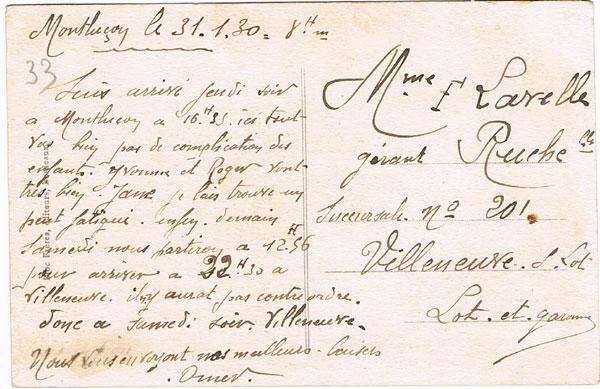 Montluçon le 31.1.30 = 8 H m
33
Suis arrivé jeudi soir
a Montlucon a 16 H 35. ici tout
vas bien pas de complication des
enfants. Yvonne et Roger vont
tres bien Jane je lais trouve un
peut fatiqué. enfin demain
samedi nous partiron a 12 H 56
pour arriver a 22 H 30 a
Villeneuve. il ny aurat pas contre ordre.
donc a samedi soir Villeneuve.
Nous vous envoyont nos meilleurs baisers
Omer.
Mme F Lavelle
gérant Ruche
Succursale No 201.
Villeneuve. S. Lot
Lot. et. garonne